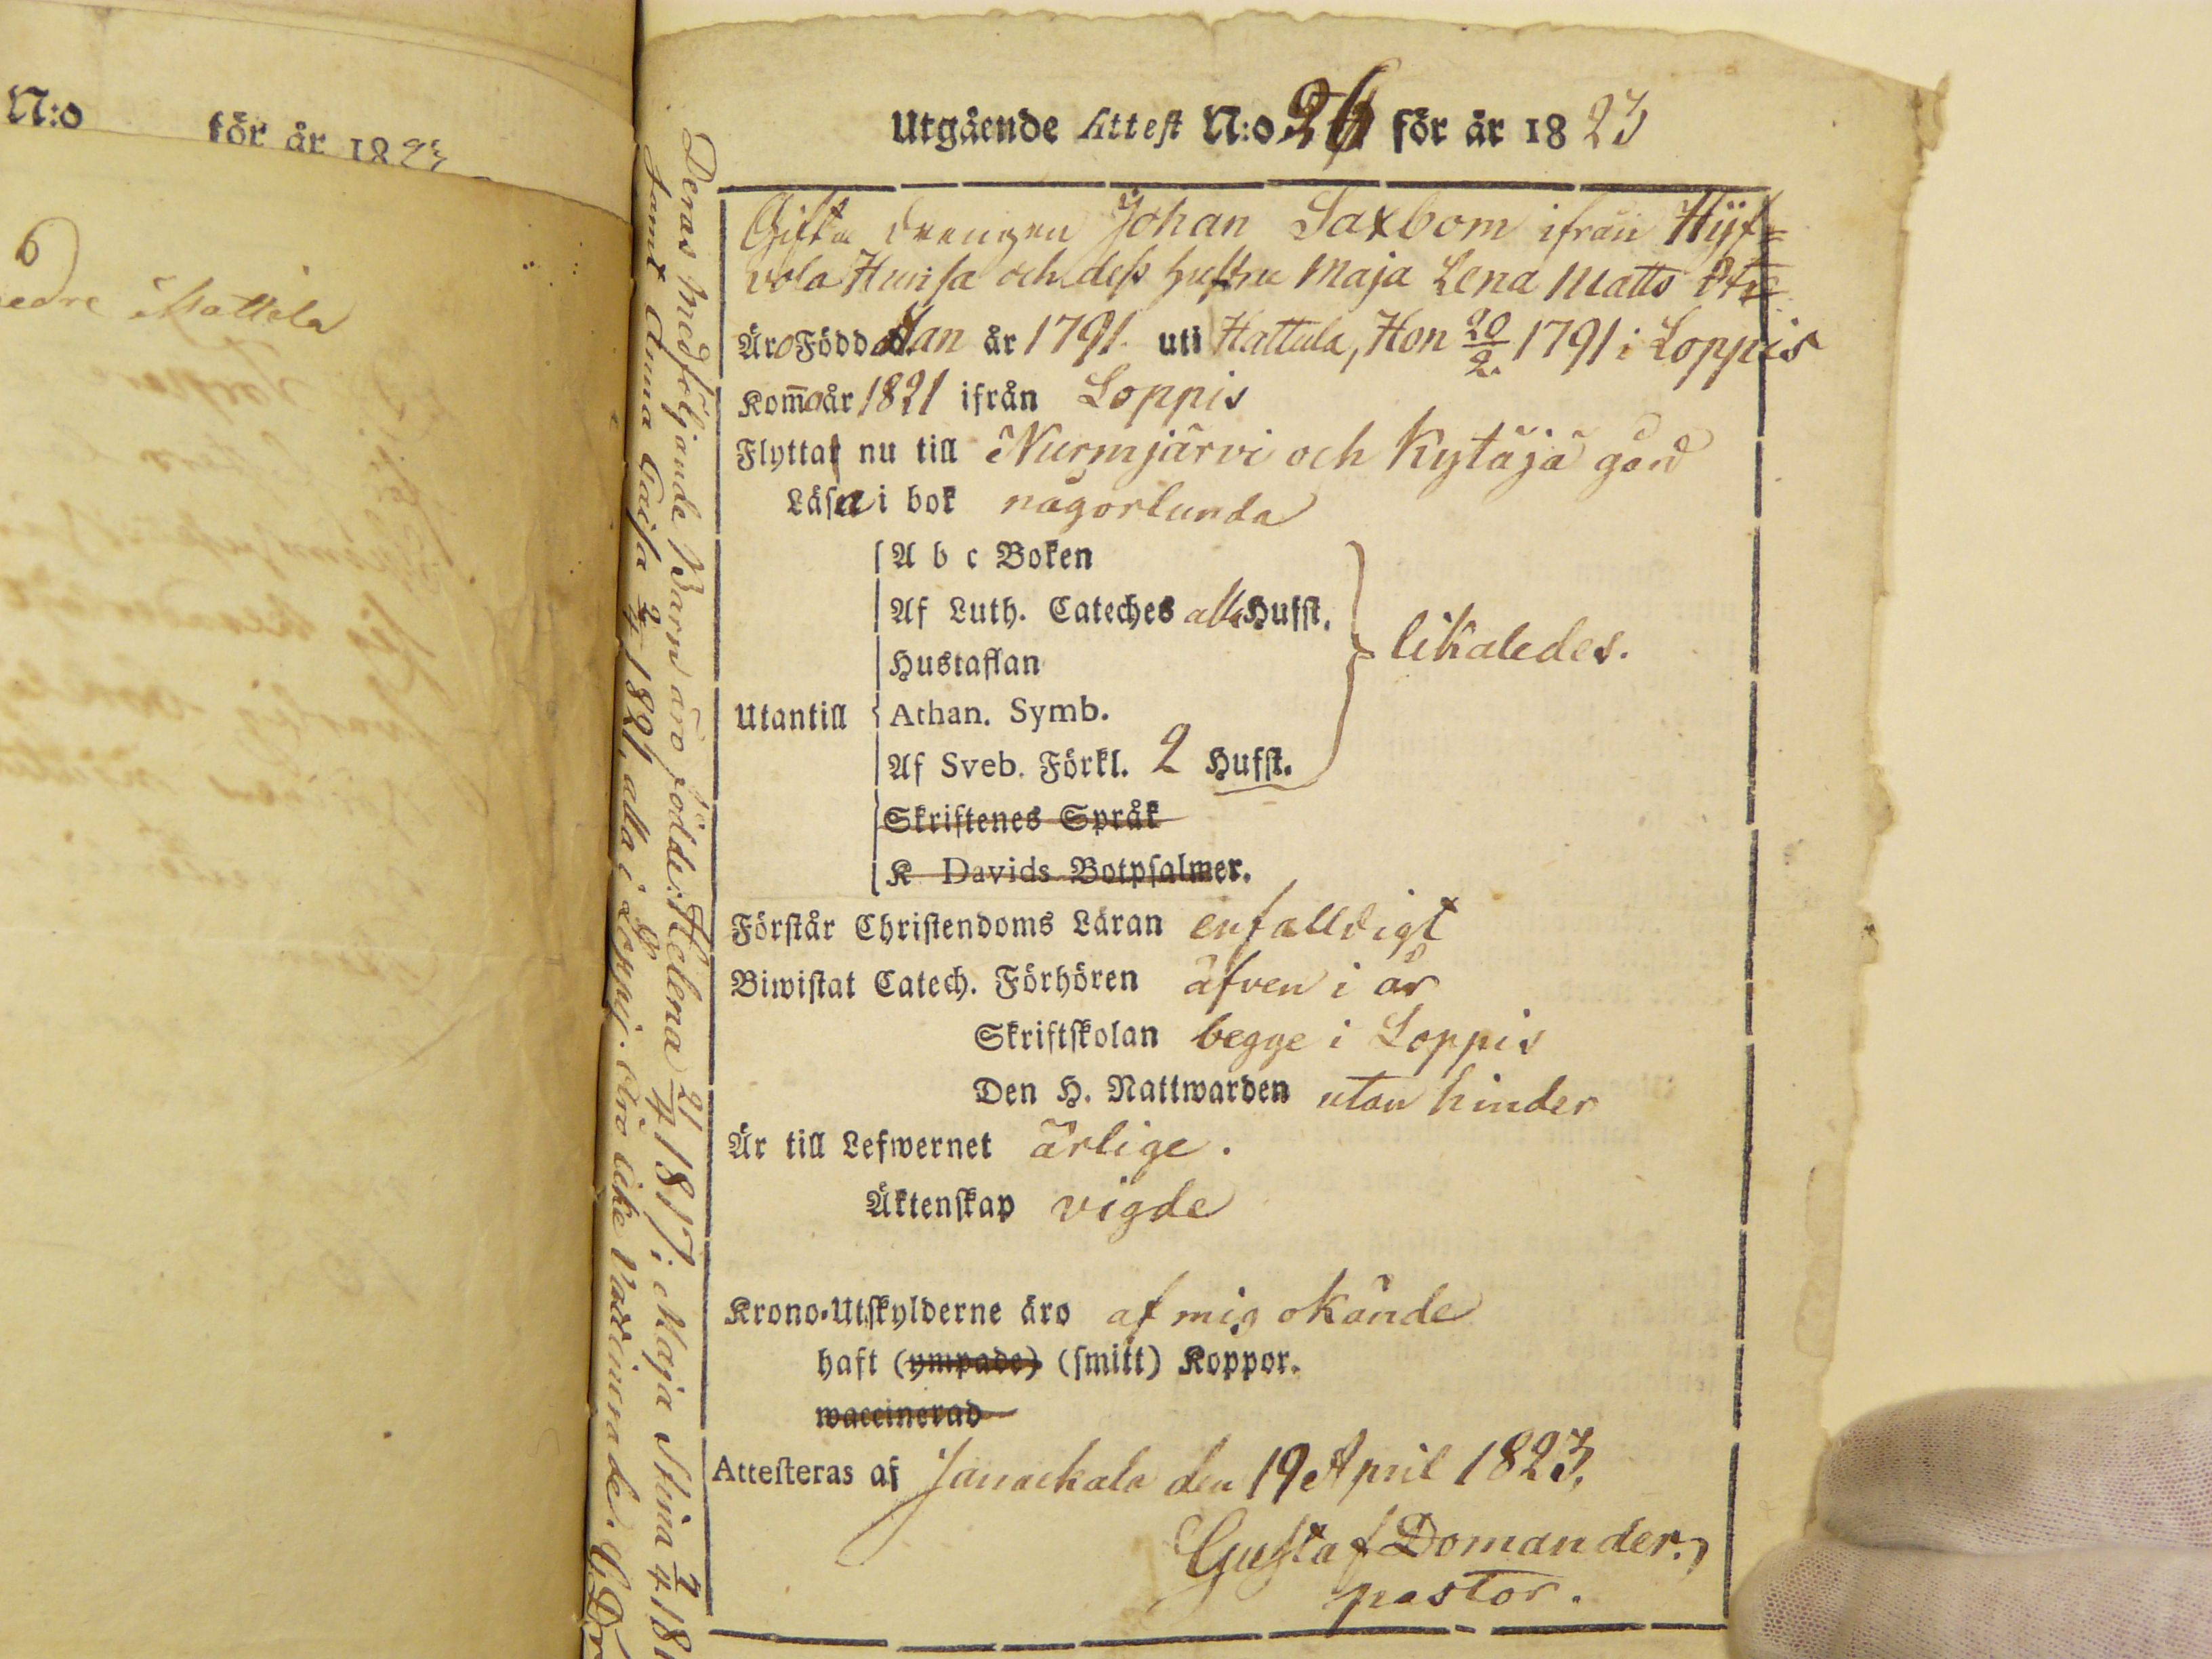 N:o för år 1823
6
Mattila
Utgående Attest N:o 26 för år 1823
Gifta drengen Johan Saxbom ifrån Hyf=
vola Hunsa och dess hustru Maja Lena Matts Dtr
Äro Född Han år 1791. uti Hattula, Hon 20/2. 1791 i Loppis
Kommo år 1821 ifrån Loppis
Flytta nu till Nurmjärvi och Kytäjä gård
Läsa i bok någorlunda
A b c Boken
Af Luth. Cateches alla Hufst.
Hustaflan
likaledes.
Utantill
Athan. Symb.
Af Sveb. Förkl. 2 Hufst.
Skriftenes Språk
K Davids Botpsalmer.
Förstår Christendoms Läran enfalldigt
Biwistat Catech. Förhören äfven i år
Skriftskolan begge i Loppis
Den H. Nattwarden utan hinder
Är till Lefwernet ärlige.
Äktenskap vigde
Krono-Utskylderne äro af mig okände
haft (ympade) (smitt) Koppor.
waccinerad
Attesteras af Janackala den 19 April 1823.
Gustaf Domander.
pastor.
Deras medföljande Barn äro födde: Helena 21/4 1817; Maja Stina 4 181
samt Anna Caisa 2/4 1821, alla i Loppis. Äro icke vaccinerade. G. D